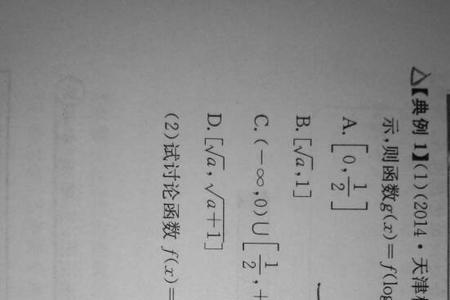 △【典例 1】(1)(2014·天津
示,则函数g(x)=f(log
A.[0,1/2]
B.[√a,1]
C.(-∞,0)∪[1/2,+
D.[√a,√a+1]
(2)试讨论函数 f(x)=